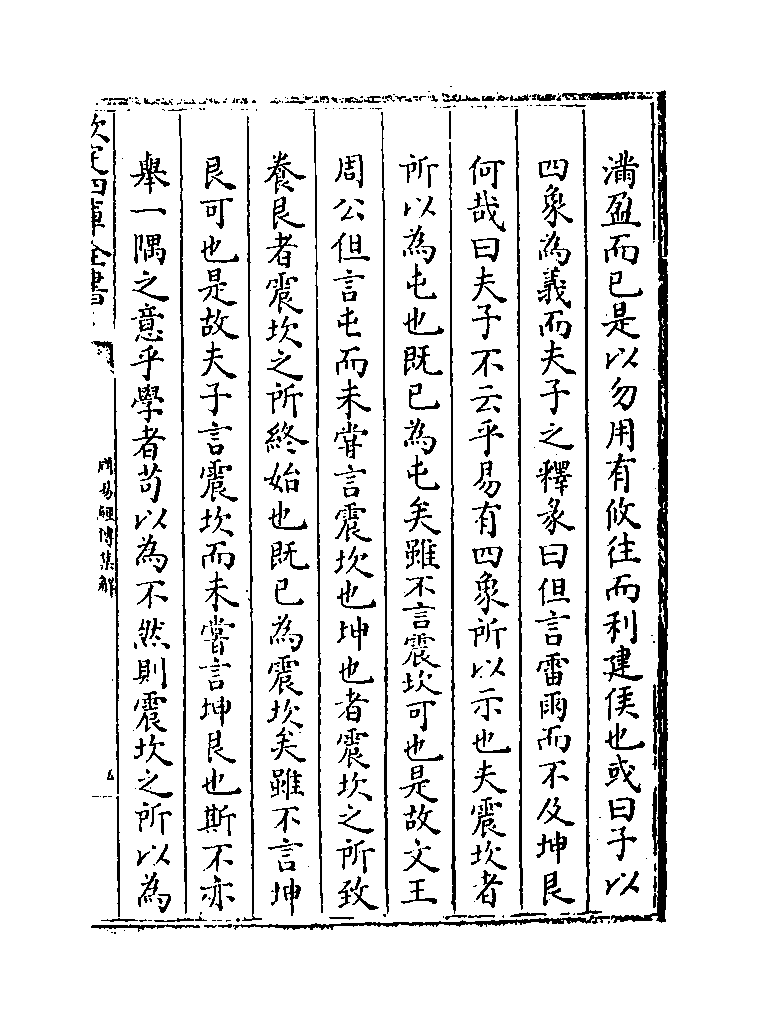 滿盈而已是以勿用有攸往而利建侯也或曰子以
四象為義而夫子之釋彖曰但言雷雨而不及坤艮
何哉曰夫子不云乎易有四象所以示也夫震坎者
所以為屯也既已為屯矣雖不言震坎可也是故文王
周公但言屯而未嘗言震坎也坤也者震坎之所致
養艮者震坎之所終始也既已為震坎矣雖不言坤
艮可也是故夫子言震坎而未嘗言坤艮也斯不亦
舉一隅之意乎學者苟以為不然則震坎之所以為
欽定四庫全書
周易經傳集解